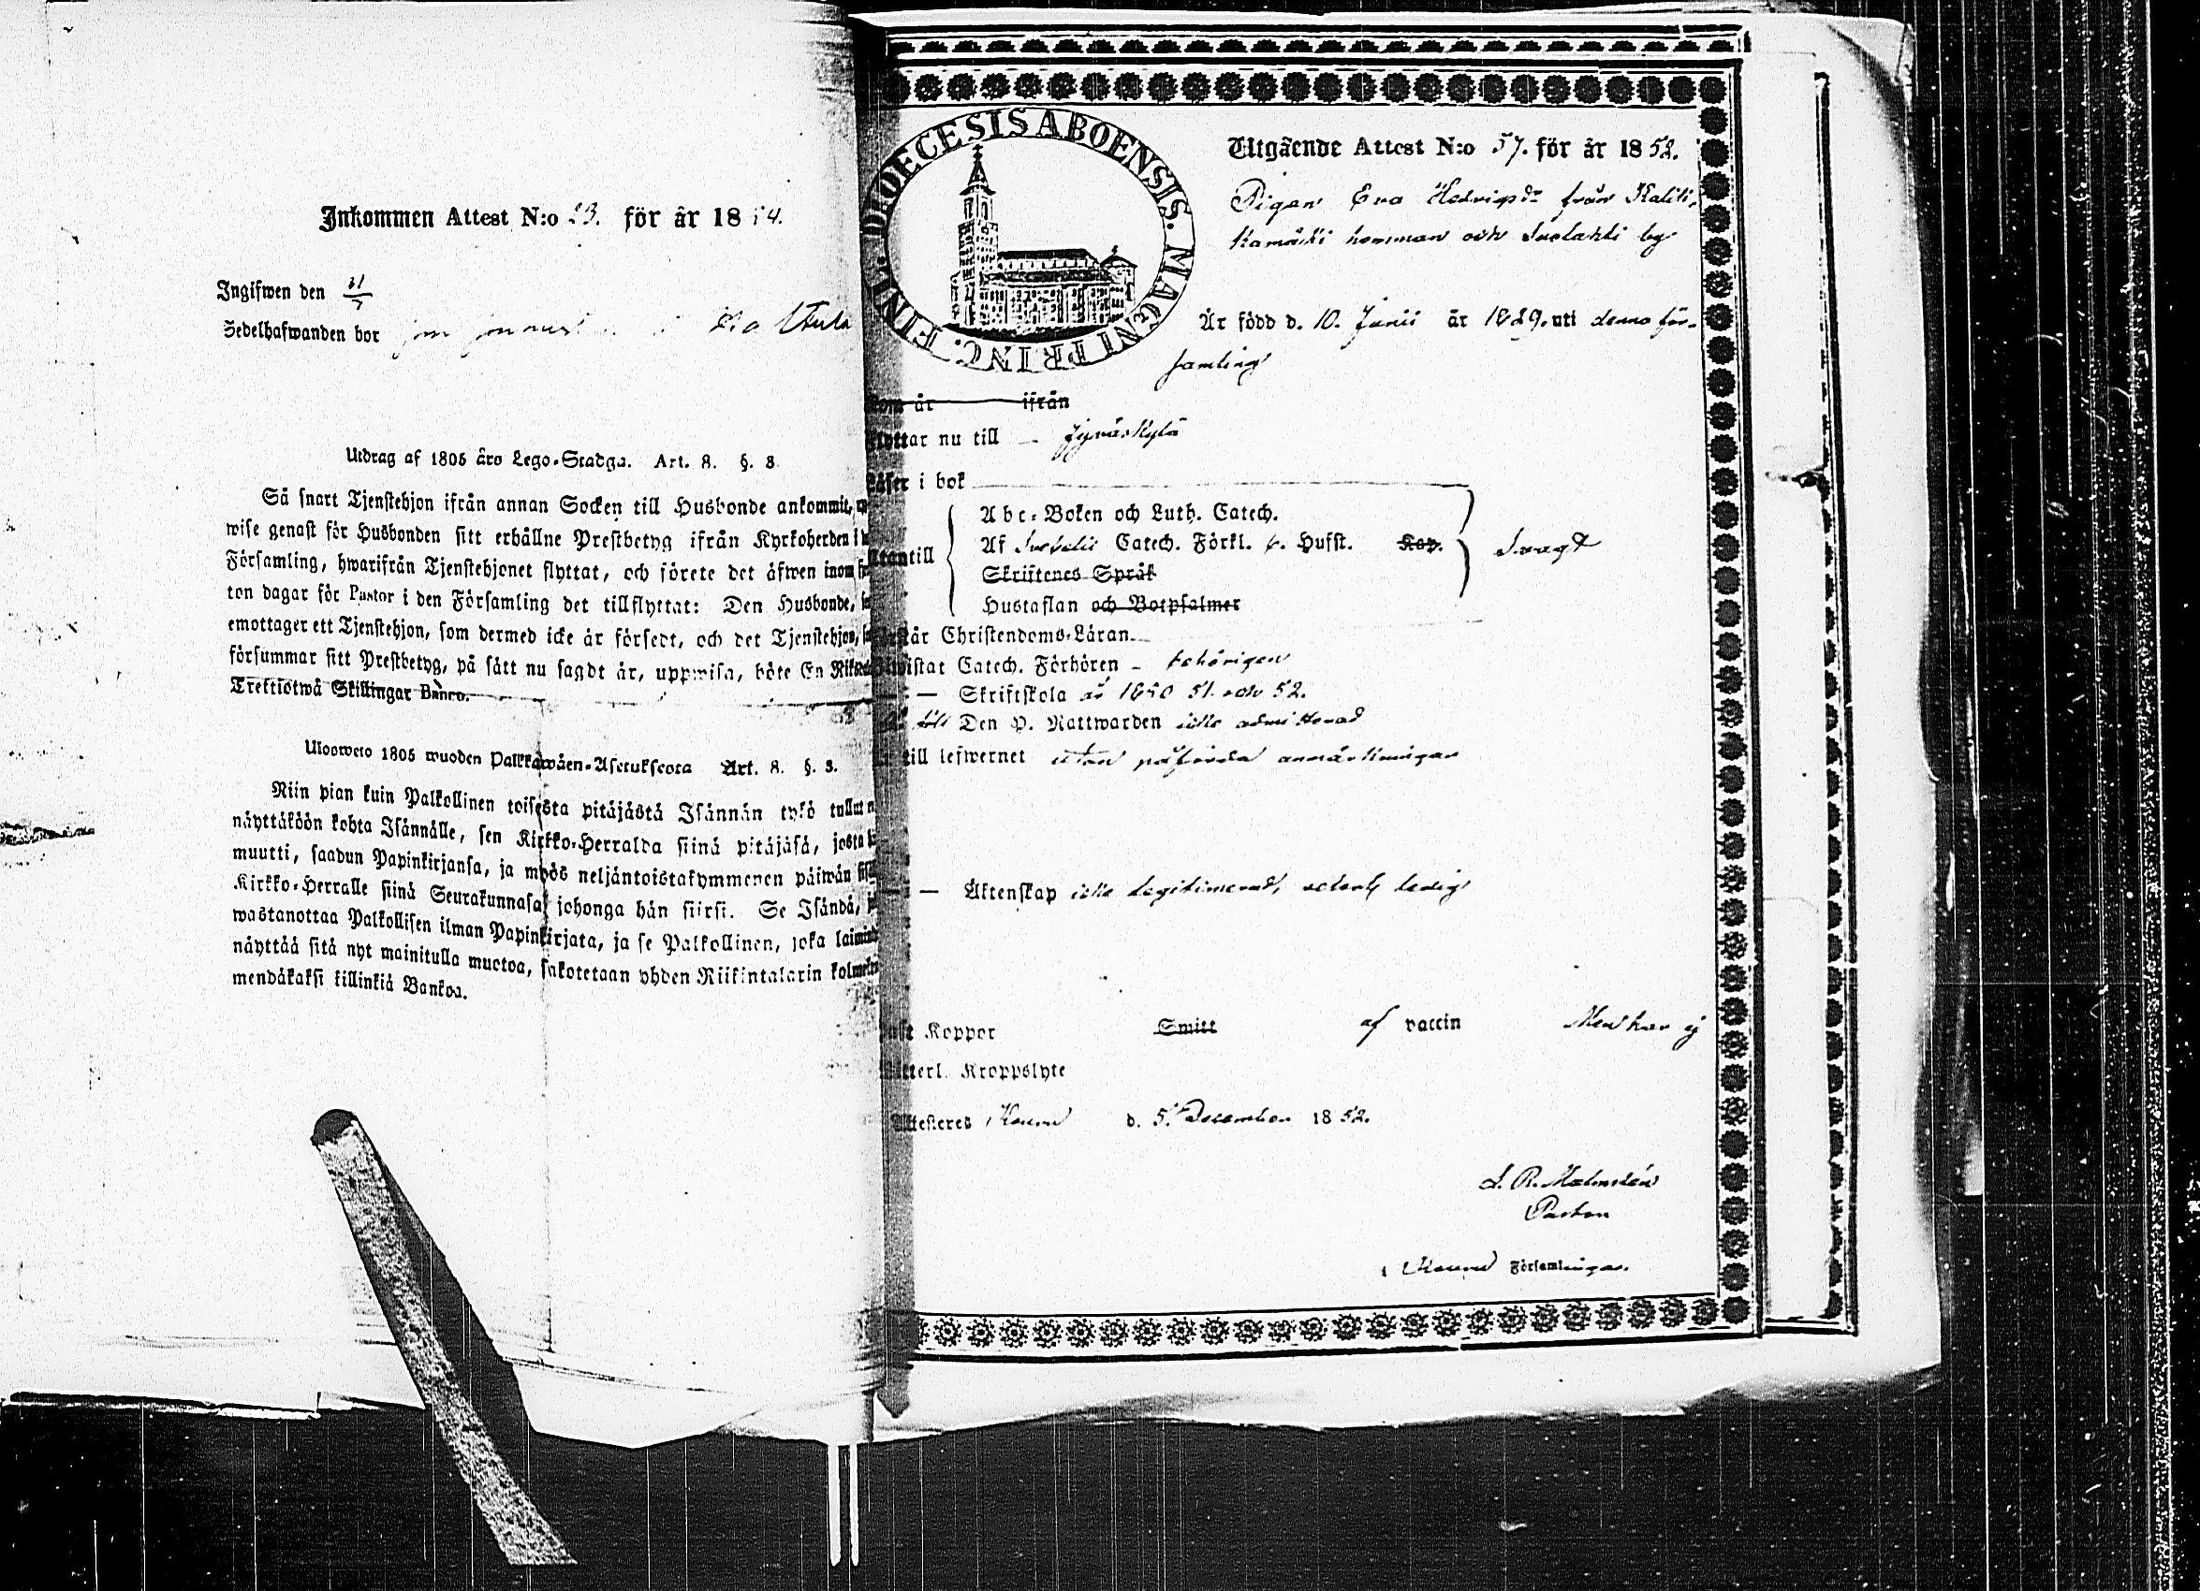 Inkommen Attest N:o 23. för år 1854.
Ingifwen den 31/7
Sedelhafwanden bor
Utdrag af 1805 års Lego-Stadga. Art. 8. §. 3.
Så snart Tjenstehjon ifrån annan Socken till Husbonde ankommit,
wise genast för Husbonden sitt erhållne Prestbetyg ifrån Kyrkoherden i
Församling, hwarifrån Tjenstehjonet flyttat, och förete det äfwen inom
ton dagar för Pastor i den Församling det tillflyttat: Den Husbonde,
emottager ett Tjenstehjon, som dermed icke är försedt, och det Tjenstehjon,
försummar sitt Prestbetyg, på sätt nu sagdt är, uppwisa, böte En
Trettiotwå Skillingar Banco.
Ulosweto 1805 wuoden Palkkawäen-Asetuksesta Art. 8. §. 3.
Niin pian kuin Palkollinen toisesta pitäjästä Isännän tykö tullut
näyttäköön kohta Isännälle, sen Kirkko-Herralda siinä pitäjäsä, josta
muutti, saadun Papinkirjansa, ja myös neljäntoistakymmenen päiwän
Kirkko-Herralle siinä Seurakunnasa johonga hän siirsi. Se Isändä,
wastanottaa Palkollisen ilman Papinkirjata, ja se Palkollinen, joka
näyttää sitä nyt mainitulla muotoa, sakotetaan yhden Riikintalarin
mendäkaksi killinkiä Bankoa.
DIOECESIS ABOENSIS. MAGNI PRINC. FINL.
Utgående Attest N:o 57. för år 1852.
Pigan Eva Hedvigsdr från
hemman och by
Är född d. 10. Junii år 1829. uti denna för-
samling
Kom år ifrån
Flyttar nu till Jyväskylä
Läser i bok
Utantill
Abc-Boken och Luth. Catech.
Af Svebelii Catech. Förkl. Hufst. Kap.
Skriftenes Språk
Hustaflan och Botpsalmer
Svagt
Förstår Christendoms-Läran
Bewistat Catech. Förhören behörigen
— Skriftskola år 1850 51. och 52.
till Den H. Nattwarden icke admitterad
till lefwernet utan påförda anmärkningar
— Äktenskap icke legitimerad, ledig
Haft Koppor Smitt af vaccin Men har ej
Ytterl. Kroppslyte
Attesteres d. 5. December 1852.
L. R. Malmstén
Pastor
Församlingar.